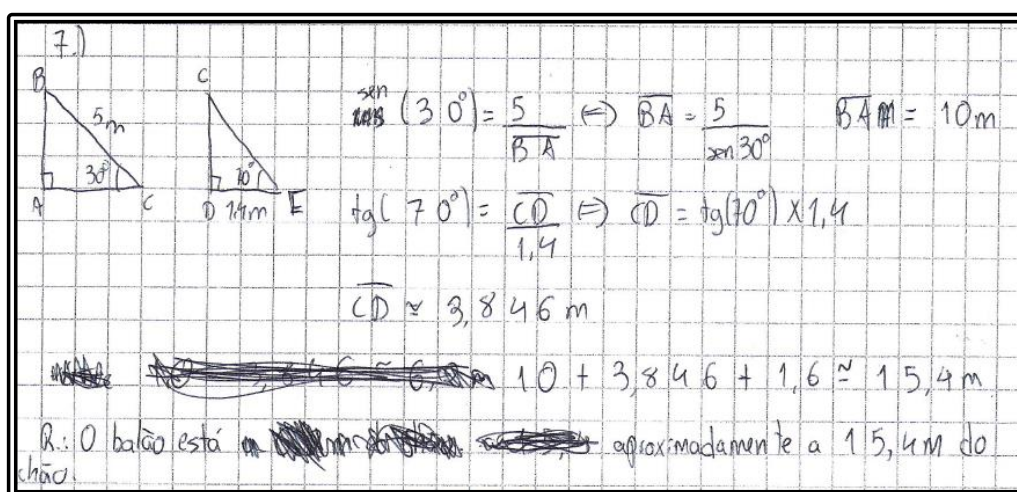 7.)
B
5m
30°
A
C
C
70°
D 1,4m E
sen (30°) = 5 / BA ⇔ BA = 5 / sen 30° BA = 10m
tg(70°) = CD / 1,4 ⇔ CD = tg(70°) X 1,4
CD ≃ 3,846 m
10 + 3,846 + 1,6 ≃ 15,4 m
R.: O balão está aproximadamente a 15,4m do
chão.